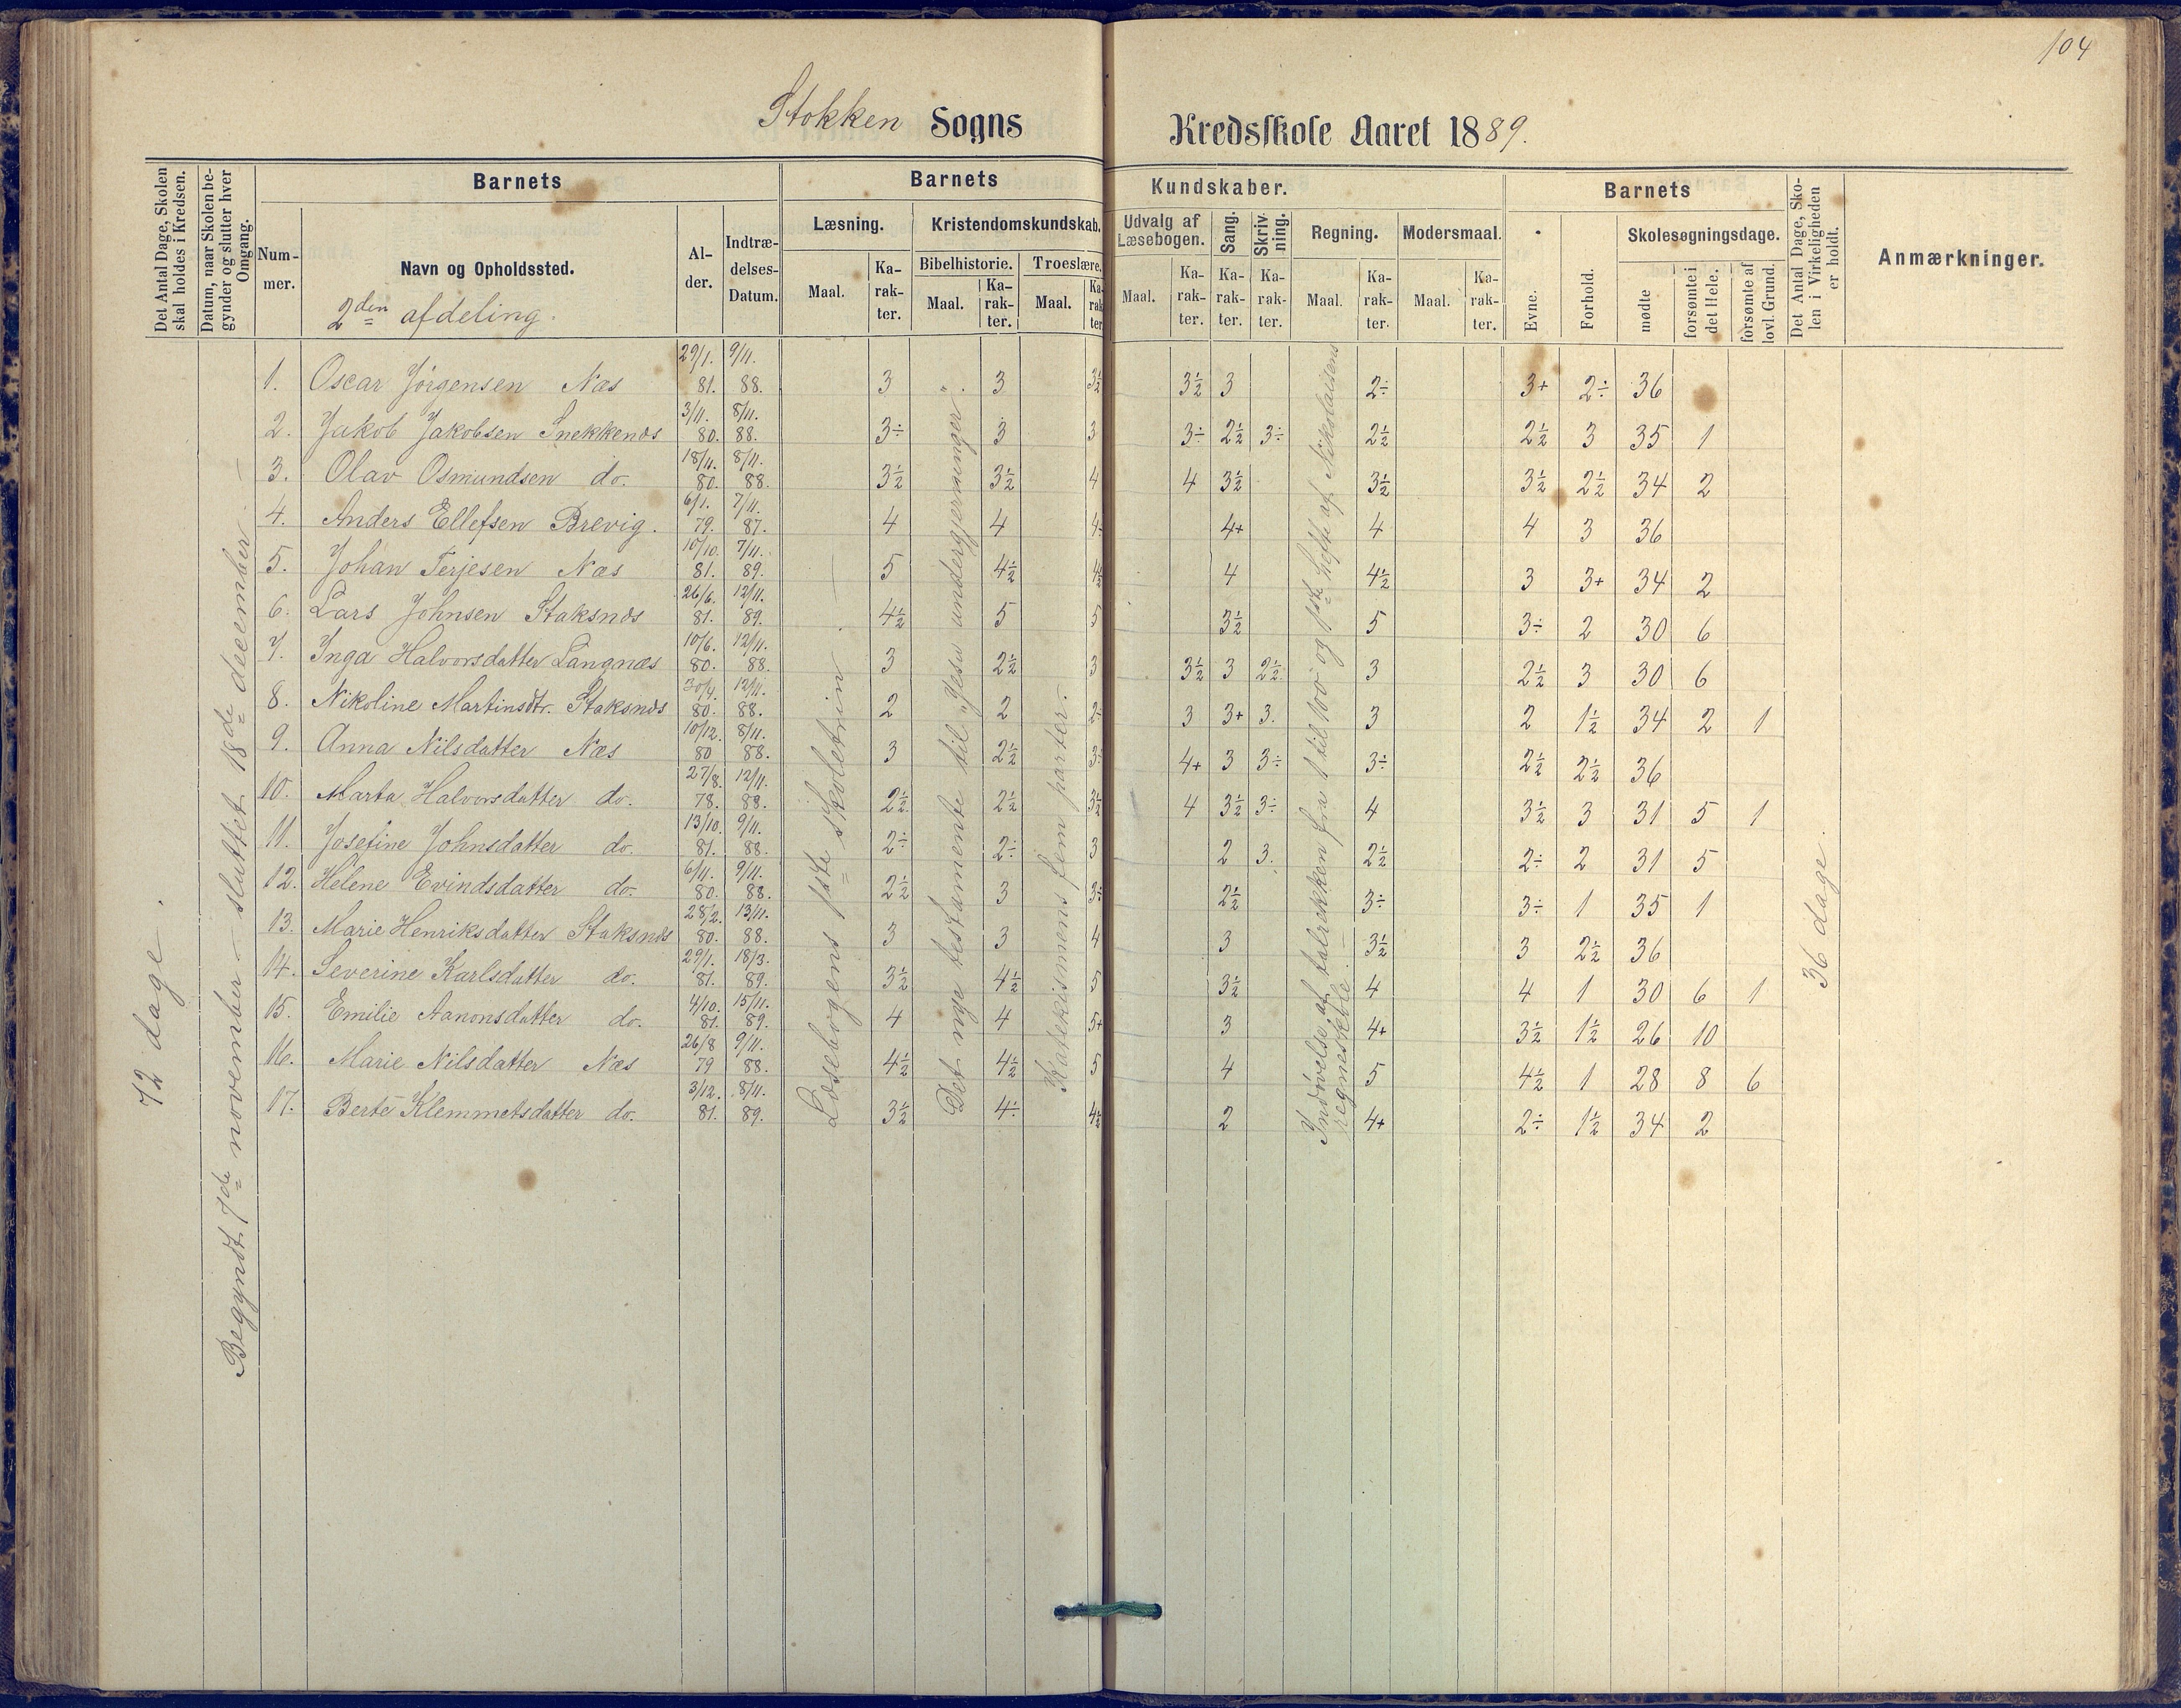 104
Stokken Sogns Kredsskole Aaret 1889.
Det Antal Dage, Skolen skal holdes i Kredsen.
Datum, naar Skolen begynder og slutter hver Omgang.
Barnets
Nummer.
Navn og Opholdssted.
2den afdeling.
Alder.
Indtrædelses-Datum.
Barnets Kundskaber.
Læsning.
Maal. Karakter.
Kristendomskundskab.
Bibelhistorie. Troeslære.
Maal. Karakter. Maal. Karakter
Udvalg af Læsebogen.
Maal. Karakter.
Sang. Karakter.
Skrivning. Karakter.
Regning.
Maal. Karakter.
Modersmaal.
Maal. Karakter.
Barnets
Evne. Forhold.
Skolesøgningsdage.
mødte forsømte i det Hele. forsømte af lovl. Grund.
Det Antal Dage, Skolen i Virkeligheden er holdt.
Anmærkninger.
72 dage.
Begyndt 7de november – sluttet 18de december –
Læsebogens 1ste skoletrin
Det nye testamente til "Jesu undergjerninger".
Katekismens fem parter.
Indøvelse af talrekken fra 1 til 100 og 1ste hefte af Nikolaisens regneskole.
36 dage
1. Oscar Jörgensen Næs 29/1. 81. 9/11. 88. 3 3 3½ 3½ 3 2÷ 3+ 2÷ 36
2. Jakob Jakobsen Snekkenæs 3/11. 80. 8/11. 88. 3÷ 3 3 3÷ 2½ 3÷ 2½ 2½ 3 35 1
3. Olav Osmundsen do. 18/11. 80. 8/11. 88. 3½ 3½ 4 4 3½ 3½ 3½ 2½ 34 2
4. Anders Ellefsen Brevig. 6/1. 79. 7/11. 87. 4 4 4÷ 4+ 4 4 3 36
5. Johan Terjesen Næs 10/10. 81. 7/11. 89. 5 4½ 4½ 4 4½ 3 3+ 34 2
6. Lars Johnsen Staksnæs 26/6. 81. 12/11. 89. 4½ 5 5 3½ 5 3÷ 2 30 6
7. Inga Halvorsdatter Langnæs 10/6. 80. 12/11. 88. 3 2½ 3 3½ 3 2½ 3 2½ 3 30 6
8. Nikoline Martinsdtr. Staksnæs 30/4. 80. 12/11. 88. 2 2 2÷ 3 3+ 3. 3 2 1½ 34 2 1
9. Anna Nilsdatter Næs 10/12. 80 8/11. 88. 3 2½ 3÷ 4+ 3 3÷ 3÷ 2½ 2½ 36
10. Marta Halvorsdatter do. 27/8. 78. 12/11. 88. 2½ 2½ 3½ 4 3½ 3÷ 4 3½ 3 31 5 1
11. Josefine Johnsdatter do. 13/10. 81. 9/11. 88. 2÷ 2÷ 3 2 3. 2½ 2÷ 2 31 5
12. Helene Evindsdatter do. 6/11. 80. 9/11. 88. 2½ 3 3÷ 2½ 3÷ 3÷ 1 35 1
13. Marie Henriksdatter Staksnæs 28/2. 80. 13/11. 88. 3 3 4 3 3½ 3 2½ 36
14. Severine Karlsdatter do. 29/1. 81. 18/3. 89. 3½ 4½ 5 3½ 4 4 1 30 6 1
15. Emilie Aanonsdatter do. 4/10. 81. 15/11. 89. 4 4 5+ 3 4+ 3½ 1½ 26 10
16. Marie Nilsdatter Næs 26/8 79 9/11. 88. 4½ 4½ 5 4 5 4½ 1 28 8 6
17. Berte Klemmetsdatter do. 3/12. 81. 8/11. 89. 3½ 4÷ 4½ 2 4+ 2÷ 1½ 34 2